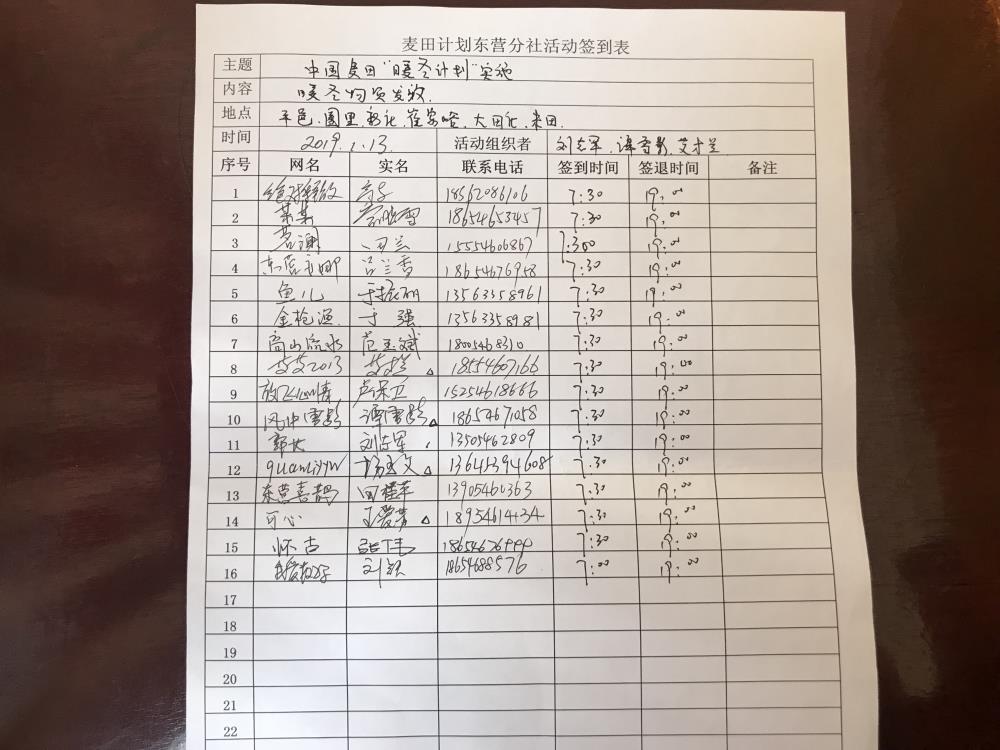 麦田计划东营分社活动签到表
主题 中国麦田“暖冬计划”实施
内容 暖冬物资发放.
地点 大田 来田.
时间 2019.1.13. 活动组织者 刘志军.谭雪影.艾才兰
序号 网名 实名 联系电话 签到时间 签退时间 备注
1 18562086106 7:30 19:00
2 某某 18654653457 7:30 19:00
3 茗澜 15554606867 7:300 19:00
4 东营 吕兰香 18654676958 7:30 19:00
5 鱼儿 于振丽 13563358961 7:30 19:00
6 金枪渔. 于强 13563358981 7:30 19:00
7 高山流水 范玉斌 18005468310 7:30 19:00
8 艾艾2013 18554607166 7:30 19:00
9 放飞心情 卢保卫 15254618666 7:30 19:00
10 风中雪影 谭雪影 18654671058 7:30 19:00
11 刘志军 13505462809 7:30 19:00
12 杨玉文 13645394608 7:30 19:00
13 东营喜鹊 田桂苹 13905460363 7:30 19:00
14 可心 王爱芳 18954614434 7:30 19:00
15 怀古 张下伟 7:30 19:00
16 刘颖 18654688576 7:00 19:00
17
18
19
20
21
22